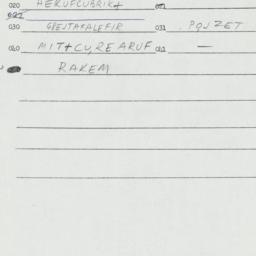 020 HERUFCUBRIKA
022
030 GRESTAFALEFIR 031 POJZET
040 MITACU,REARUF 042 —
RAKEM